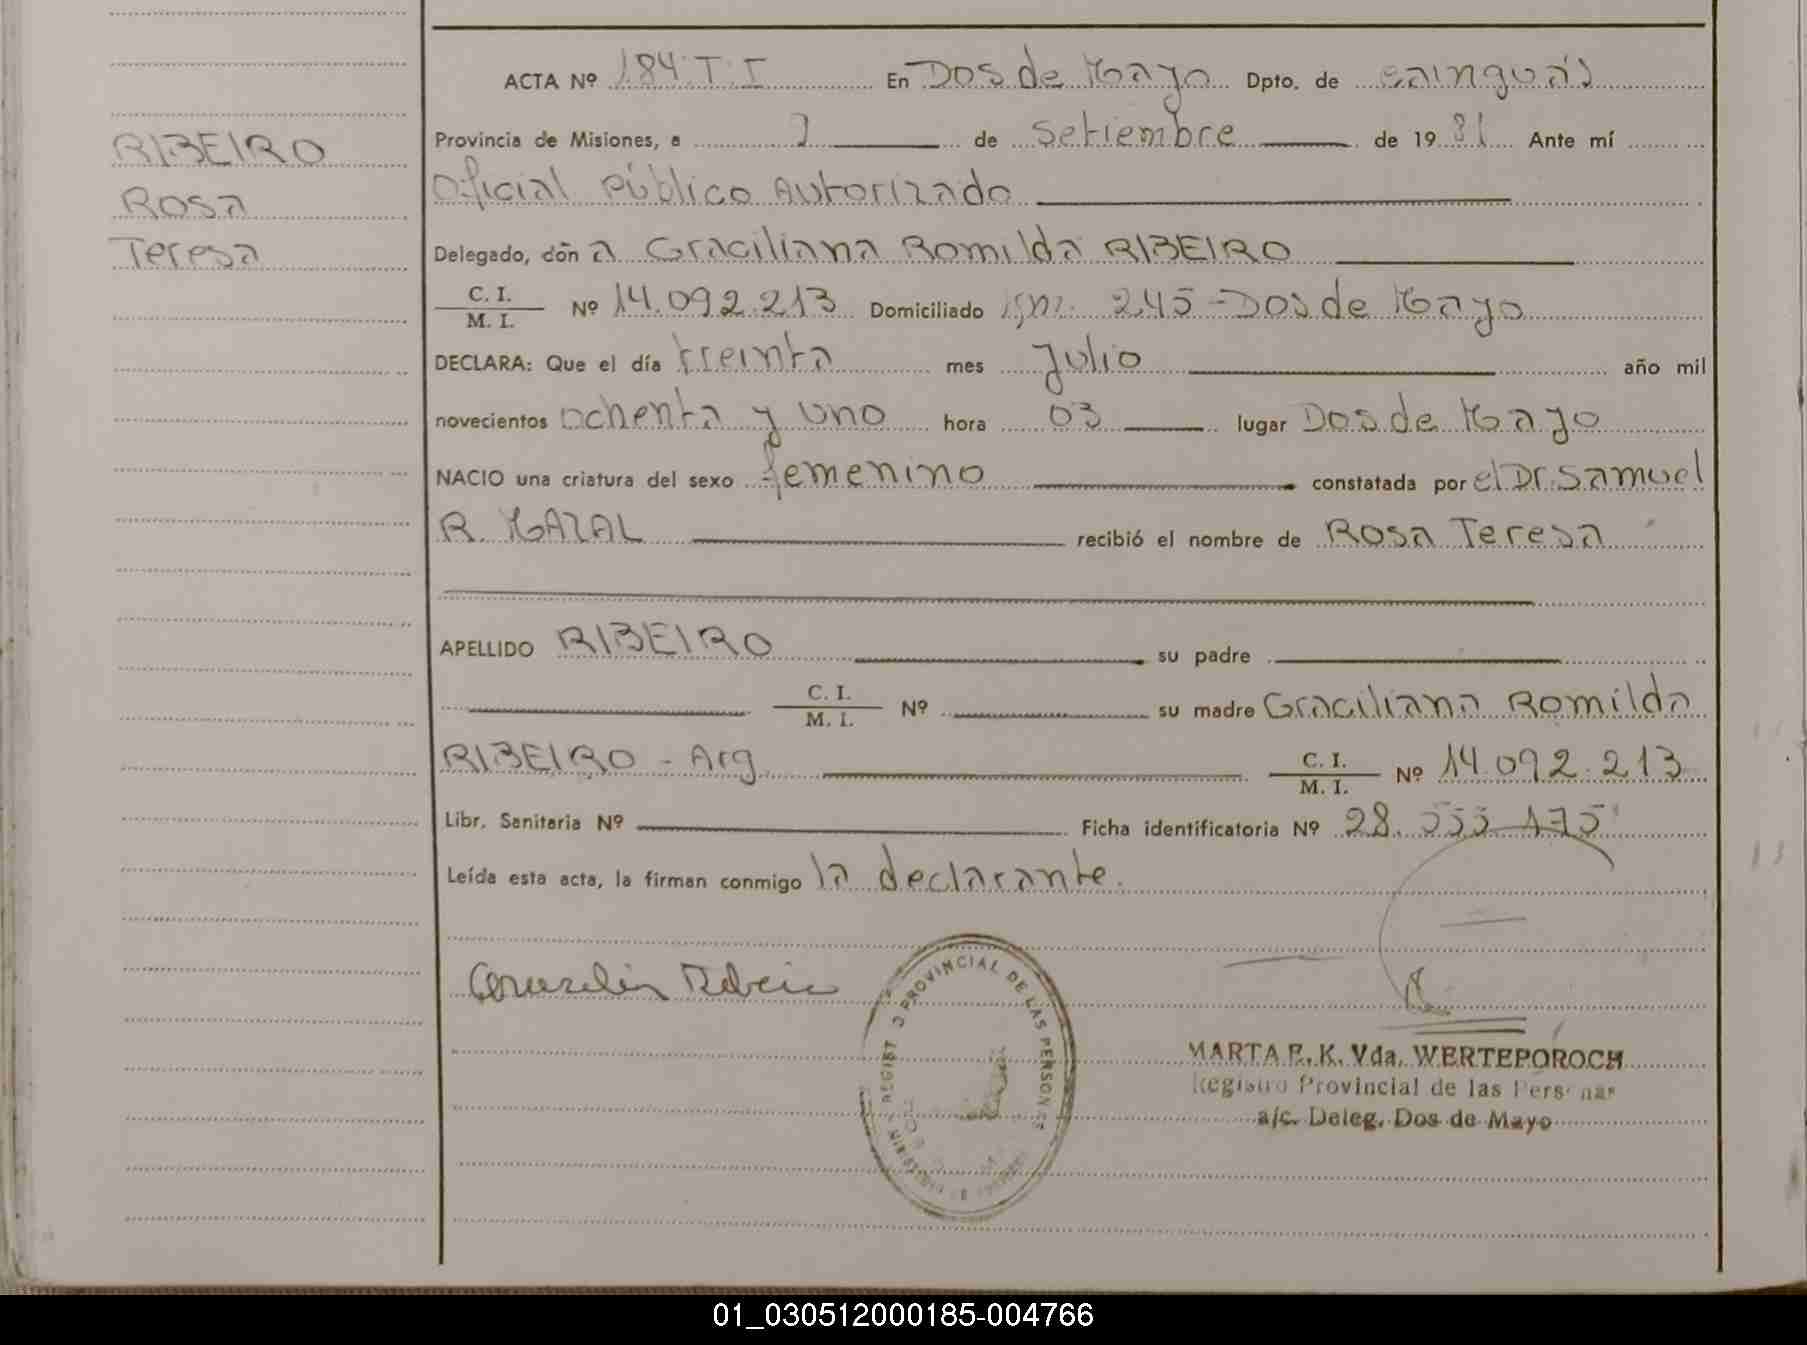 RIBEIRO
Rosa
Teresa
ACTA Nº 184 T.I En Dos de Mayo Dpto. de Cainguás
Provincia de Misiones, a 2 de Setiembre de 1981 Ante mí
Oficial Público Autorizado
Delegado, don a Graciliana Romilda RIBEIRO
C. I.
M. I. Nº 14.092.213 Domiciliado 245 - Dos de Mayo
DECLARA: Que el día treinta mes Julio año mil
novecientos ochenta y uno hora 03 lugar Dos de Mayo
NACIO una criatura del sexo femenino constatada por el Dr. Samuel
R. MAZAL recibió el nombre de Rosa Teresa
APELLIDO RIBEIRO su padre
C. I.
M. I. Nº su madre Graciliana Romilda
RIBEIRO - Arg. C. I.
M. I. Nº 14.092.213
Libr. Sanitaria Nº Ficha identificatoria Nº 28.
Leída esta acta, la firman conmigo la declarante.
PROVINCIAL DE LAS PERSONAS
MARTA K. Vda. WERTEPOROCH
Registro Provincial de las Personas
a/c. Deleg. Dos de Mayo
01_030512000185-004766